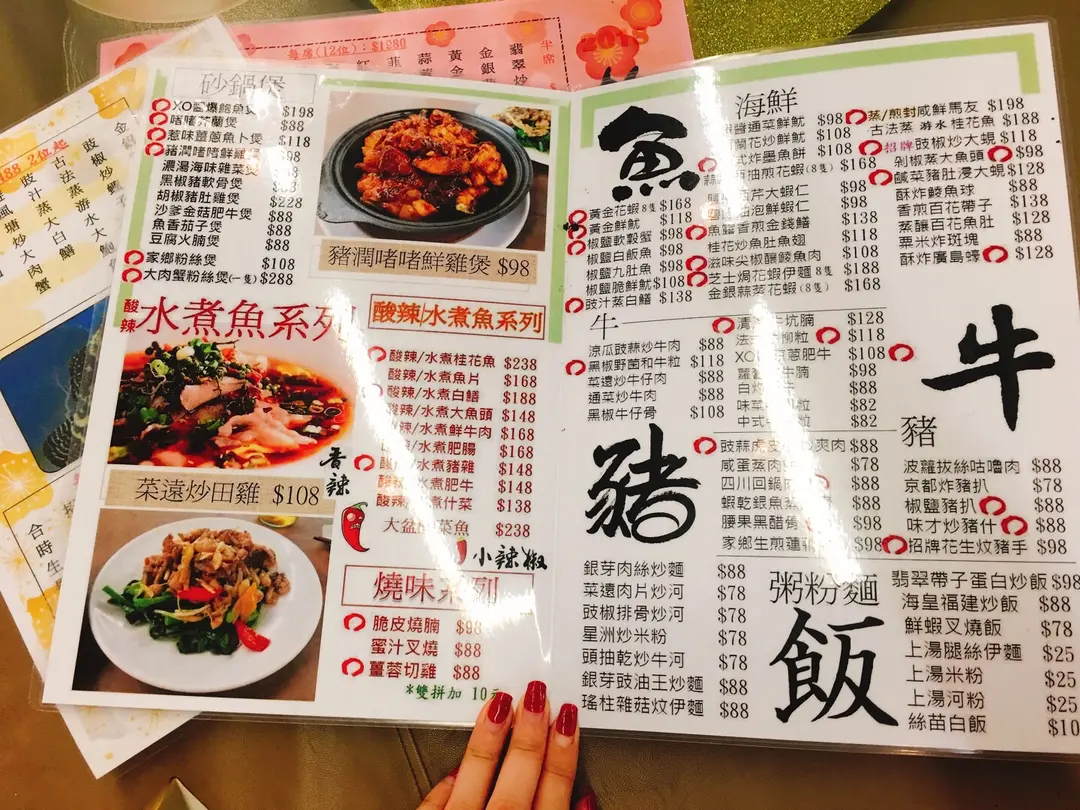 每席(12位)：$1980
半席
砂鍋煲
XO醬爆鮑魚煲 $198
啫啫芥蘭煲 $88
惹味薑蔥魚卜煲 $118
豬潤啫啫鮮雞煲
濃湯海味雜菜煲
黑椒豬軟骨煲
胡椒豬肚雞煲 $228
沙爹金菇肥牛煲 $88
魚香茄子煲 $88
豆腐火腩煲 $88
家鄉粉絲煲 $108
大肉蟹粉絲煲(一隻) $288
豬潤啫啫鮮雞煲 $98
酸辣水煮魚系列
酸辣/水煮魚系列
酸辣/水煮桂花魚 $238
酸辣/水煮魚片 $168
酸辣/水煮白鱔 $188
酸辣/水煮大魚頭 $148
/水煮鮮牛肉 $168
/水煮肥腸 $168
水煮豬雜 $148
水煮肥牛 $148
酸辣 水煮什菜 $138
大盆 菜魚 $238
香辣
小辣椒
菜遠炒田雞 $108
燒味系列
脆皮燒腩 $98
蜜汁叉燒 $88
薑蓉切雞 $88
*雙拼加 10元
魚
海鮮
醬通菜鮮魷 $98
蘭花炒鮮魷 $108
式炸墨魚餅 $108
抽煎花蝦(8隻) $168
西芹大蝦仁 $98
油泡鮮蝦仁 $98
魚腸香煎金錢鱔 $138
桂花炒魚肚魚翅 $118
滋味尖椒釀鯪魚肉 $108
芝士焗花蝦伊麵 8隻 $188
金銀蒜蒸花蝦(8隻) $168
黃金花蝦 8隻 $168
黃金鮮魷 $98
椒鹽軟殼蟹 $98
椒鹽白飯魚 $98
椒鹽九肚魚 $98
椒鹽脆鮮魷 $108
豉汁蒸白鱔 $138
蒸/煎封咸鮮馬友 $198
古法蒸 游水桂花魚 $188
招牌 豉椒炒大蜆 $118
剁椒蒸大魚頭 $98
鹹菜豬肚浸大蜆 $128
酥炸鯪魚球 $88
香煎百花帶子 $138
蒸釀百花魚肚 $128
粟米炸斑塊 $88
酥炸廣島蠔 $128
牛
涼瓜豉蒜炒牛肉 $88
黑椒野菌和牛粒 $118
菜遠炒牛仔肉 $88
通菜炒牛肉 $88
黑椒牛仔骨 $108
清 牛坑腩 $128
法 柳粒 $118
XO 蔥肥牛 $108
蘿 牛腩 $98
白 $88
味 粒 $82
中式 粒 $82
牛
豬
豉蒜虎皮 爽肉 $88
咸蛋蒸肉 $78
四川回鍋肉 $88
蝦乾銀魚蒸 $88
腰果黑醋骨 $88
家鄉生煎蓮 $98
豬
波蘿拔絲咕嚕肉 $88
京都炸豬扒 $78
椒鹽豬扒 $88
味才炒豬什 $88
招牌花生炆豬手 $98
粥粉麵
飯
銀芽肉絲炒麵 $88
菜遠肉片炒河 $78
豉椒排骨炒河 $78
星洲炒米粉 $78
頭抽乾炒牛河 $78
銀芽豉油王炒麵 $88
瑤柱雜菇炆伊麵 $88
翡翠帶子蛋白炒飯 $98
海皇福建炒飯 $88
鮮蝦叉燒飯 $78
上湯腿絲伊麵 $25
上湯米粉 $25
上湯河粉 $25
絲苗白飯 $10